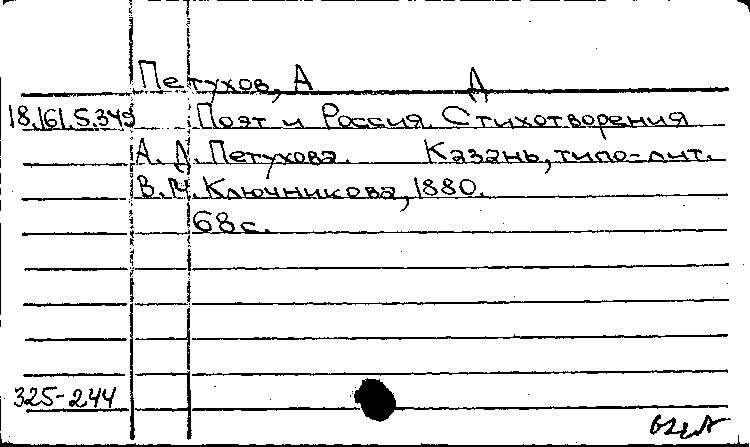 Петухов, А Д
18.161.5.349 Поэт и Россия. Стихотворения
А. Д. Петухова. Казань, типо-лит.
В. М. Ключникова, 1880.
68 с.
325-244